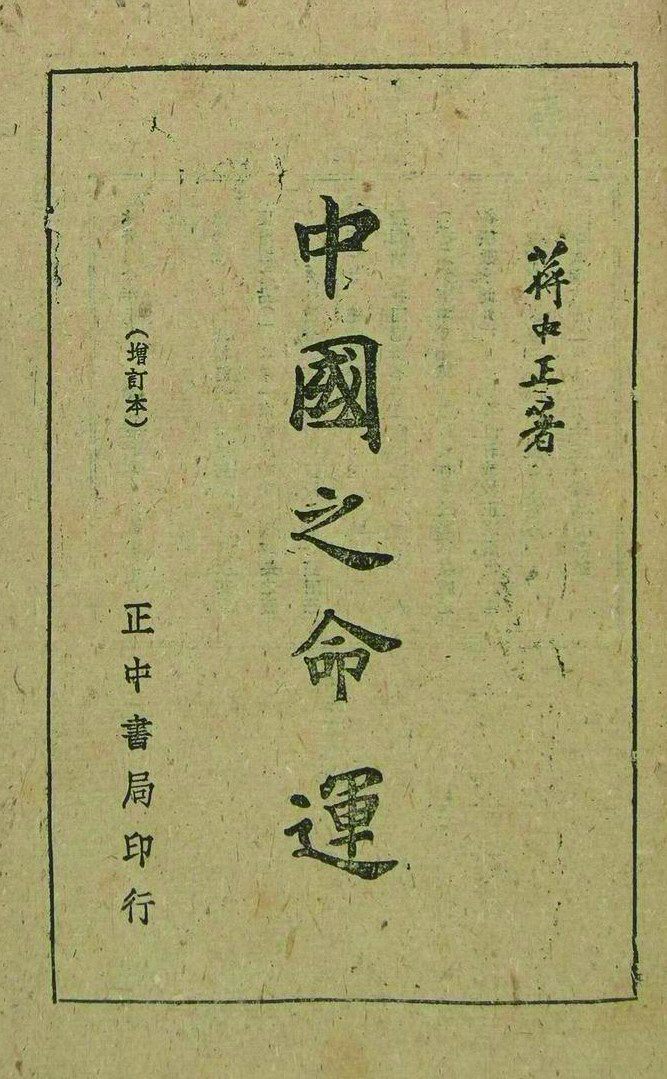 蔣中正著
中國之命運
（增訂本）
正中書局印行